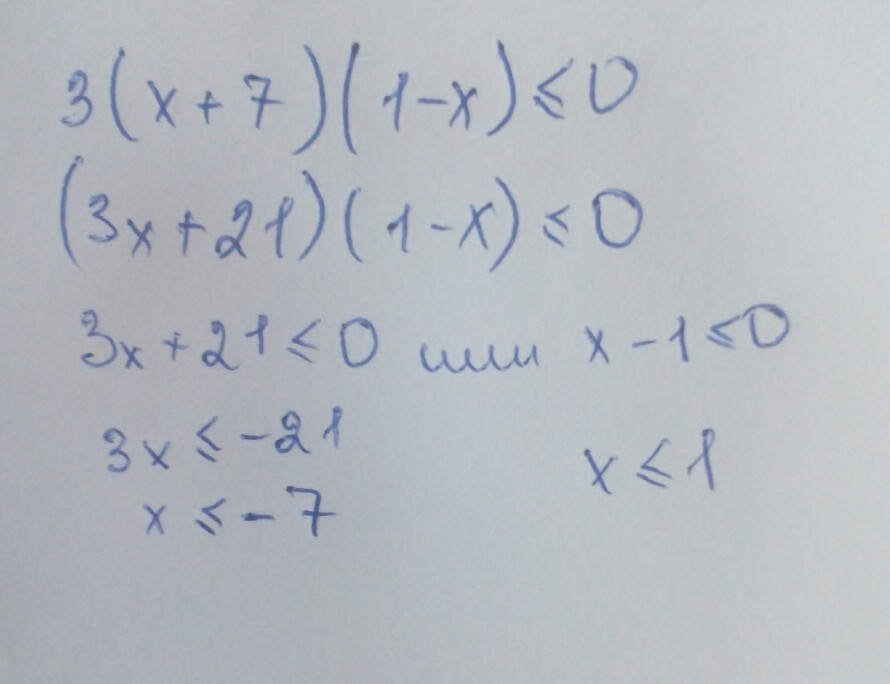 3(x+7)(1-x)≤0
(3x+21)(1-x)≤0
3x+21≤0 или x-1≤0
3x≤-21
x≤1
x≤-7